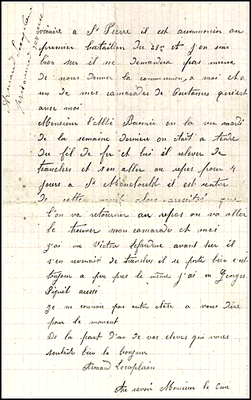 à St Pierre il est aumonier au
premier bataillon du 25e et j'en suis
bien sur il ne demandra pas mieux
de nous donner la communion, a moi et a
un de mes camarades de Portanes qui est
avec moi
Monsieur l'Abbé on la vu mardi
de la semaine derniere on était a tendre
du fil de fer et lui il relever de
tranches et s'en aller au repos pour 4
jours a St il est rentré
de cette nuit alors que
l'on va retourner au repos on va aller
le trouver mon camarade et moi
j'ai vu Victor avant hier il
s'en revenait de tranches il se porte bien c'est
toujours a peu pres le même j'ai vu Georges
aussi
ge ne connais pas autre chose a vous dire
pour le moment
De la part d'un de vos eleves qui vous
souhaite bien le bonjour
Armand
Au revoir Monsieur le Curé